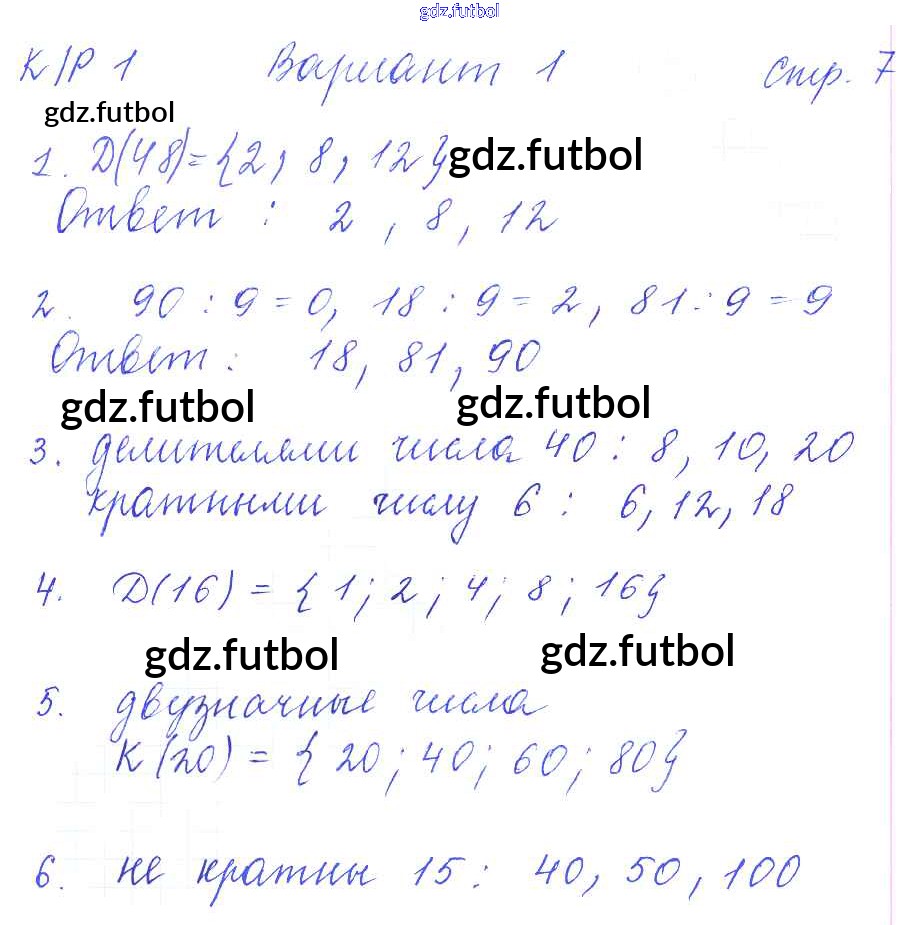 gdz.futbol
К/Р 1 Вариант 1 Стр. 7
gdz.futbol
1. D(48)={2, 8, 12} gdz.futbol
Ответ: 2, 8, 12
2. 90 : 9 = 0, 18 : 9 = 2, 81 : 9 = 9
Ответ: 18, 81, 90
gdz.futbol gdz.futbol
3. делителями числа 40 : 8, 10, 20
кратными числу 6 : 6, 12, 18
4. D(16) = {1; 2; 4; 8; 16}
gdz.futbol gdz.futbol
5. двузначные числа
К(20) = {20; 40; 60; 80}
6. не кратны 15 : 40, 50, 100